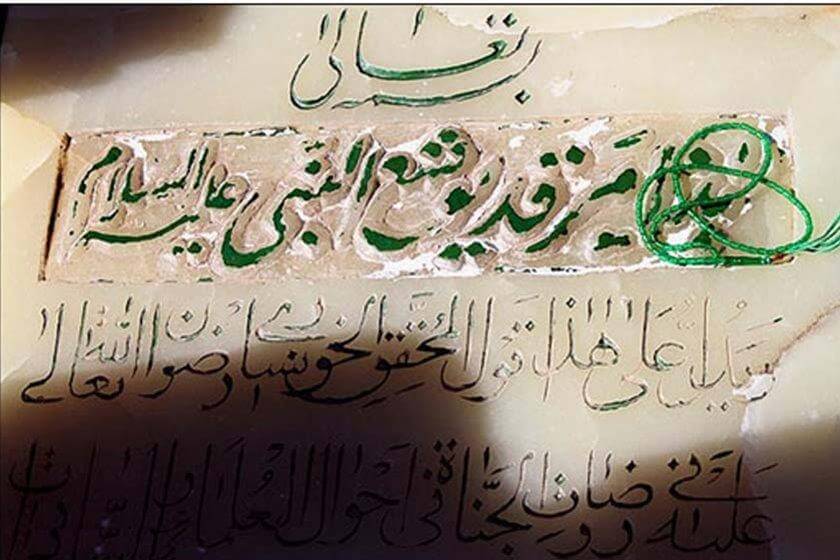 بسمه تعالی
هذا مرقد یوشع النبی علیه السلام
و یدل علی هذا قول المحقق الخونساری رضوان الله تعالی
علیه فی روضات الجنات فی احوال العلماء